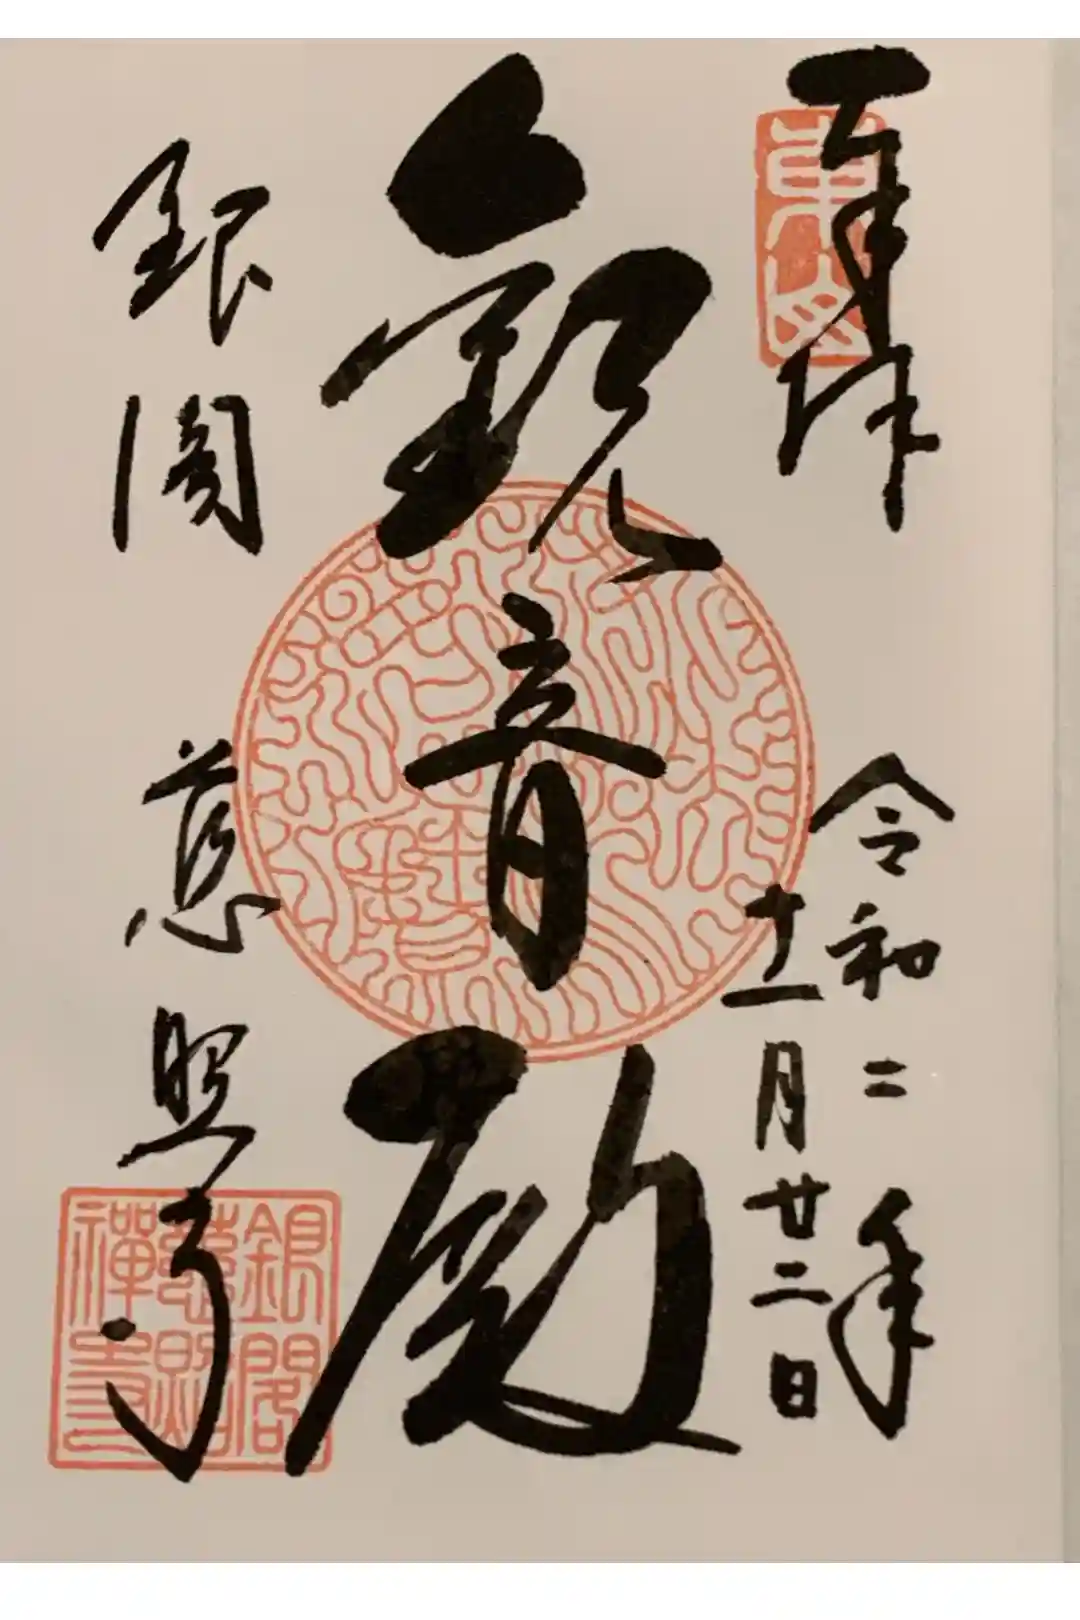 奉拝
東山
令和二年
十一月廿二日
観音殿
銀閣
慈照寺
銀閣
慈照
禅寺